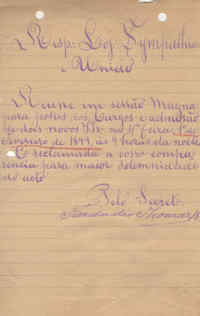 Resp∴ Loj∴ Sympathia
e União
Reune em sessão Magna
para posse dos Cargos e admissão
de dois novos IIr∴ na 4ª feira, 1º de
Fevereiro de 1899, ás 7 horas da noite
É reclamada a vosso compa
rencia para maior solemnidade
do acto
Pelo Secret∴